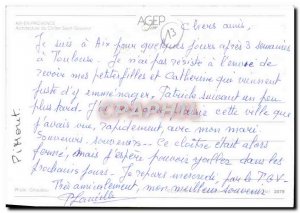 AIX-EN-PROVENCE
AGEP
13
Chers amis,
Je suis à Aix pour quelques jours après 3 semaines
à Toulouse. Je n'ai pas résisté à l'envie de
revoir mes petites filles et Catherine qui viennent
juste d'y emménager. Patrick suivant un peu
plus tard. cette ville que
j'avais vue, rapidement, avec mon mari.
Souvenirs souvenirs -- Ce cloître était alors
fermé, mais j'espère pouvoir y aller dans les
prochains jours. Je repars mercredi, par le T.G.V.
Très amicalement, mon meilleur souvenir